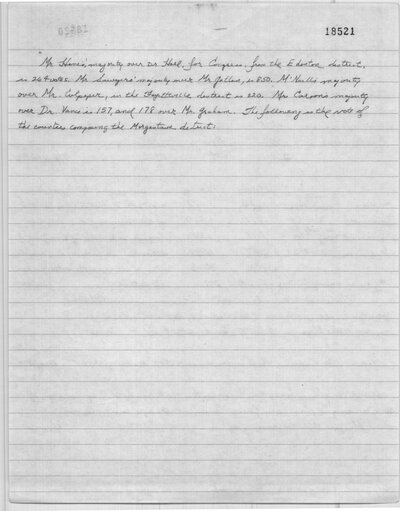 18521
Mr Hines, majority over Dr Hall, for Congress, from the Edenton district,
is 264 votes. Mr Sawyers' majority over Mr. is 850. M'Neill's majority
over Mr. Culpeper, in the Fayetteville district is 220. Mr Carsons majority
over Dr. Vance is 157, and 178 over Mr. Graham. The following is the vote of
the counties composing the Morgantown district: